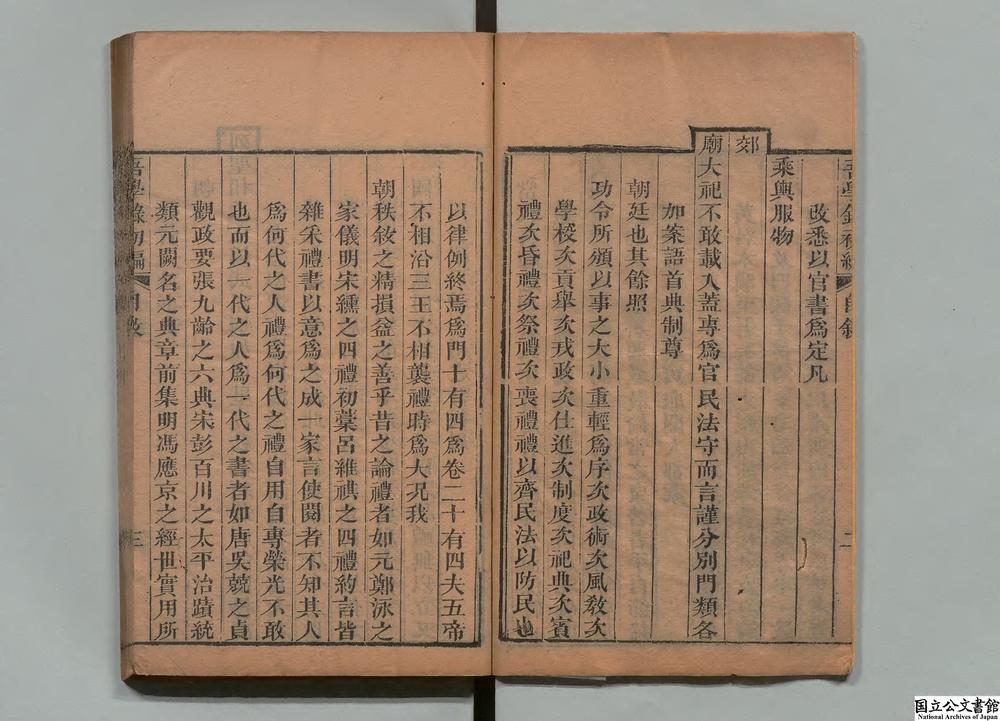 改悉以官書爲定凡
乘輿服物
郊
廟大祀不敢載入蓋專爲官民法守而言謹分別門類各
加案語首典制尊
朝廷也其餘照
功令所頒以事之大小重輕爲序次政術次風敎次
學校次貢舉次戎政次仕進次制度次祀典次賓
禮次昏禮次祭禮次喪禮禮以齊民法以防民也
二
以律例終焉爲門十有四爲卷二十有四夫五帝
不相沿三王不相襲禮時爲大况我
朝秩敘之精損益之善乎昔之論禮者如元鄭泳之
家儀明宋纁之四禮初稾呂維祺之四禮約言皆
雜采禮書以意爲之成一家言使閱者不知其人
爲何代之人禮爲何代之禮自用自專榮光不敢
也而以一代之人爲一代之書者如唐吳兢之貞
觀政要張九齡之六典宋彭百川之太平治蹟統
類元闕名之典章前集明馮應京之經世實用所
吾學錄初編
三
国立公文書館
National Archives of Japan